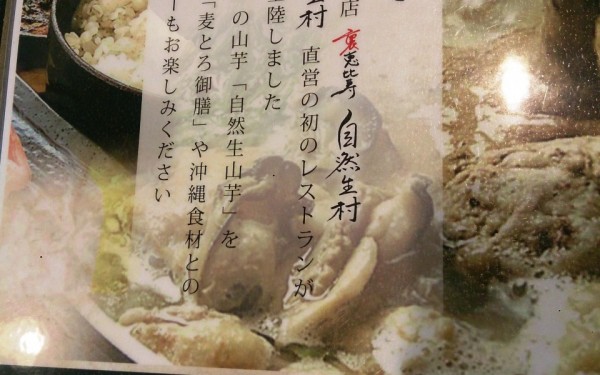 店 裏恵比寿 自然生村
生村 直営の初のレストランが
上陸しました
の山芋「自然生山芋」を
「麦とろ御膳」や沖縄食材との
ーもお楽しみください